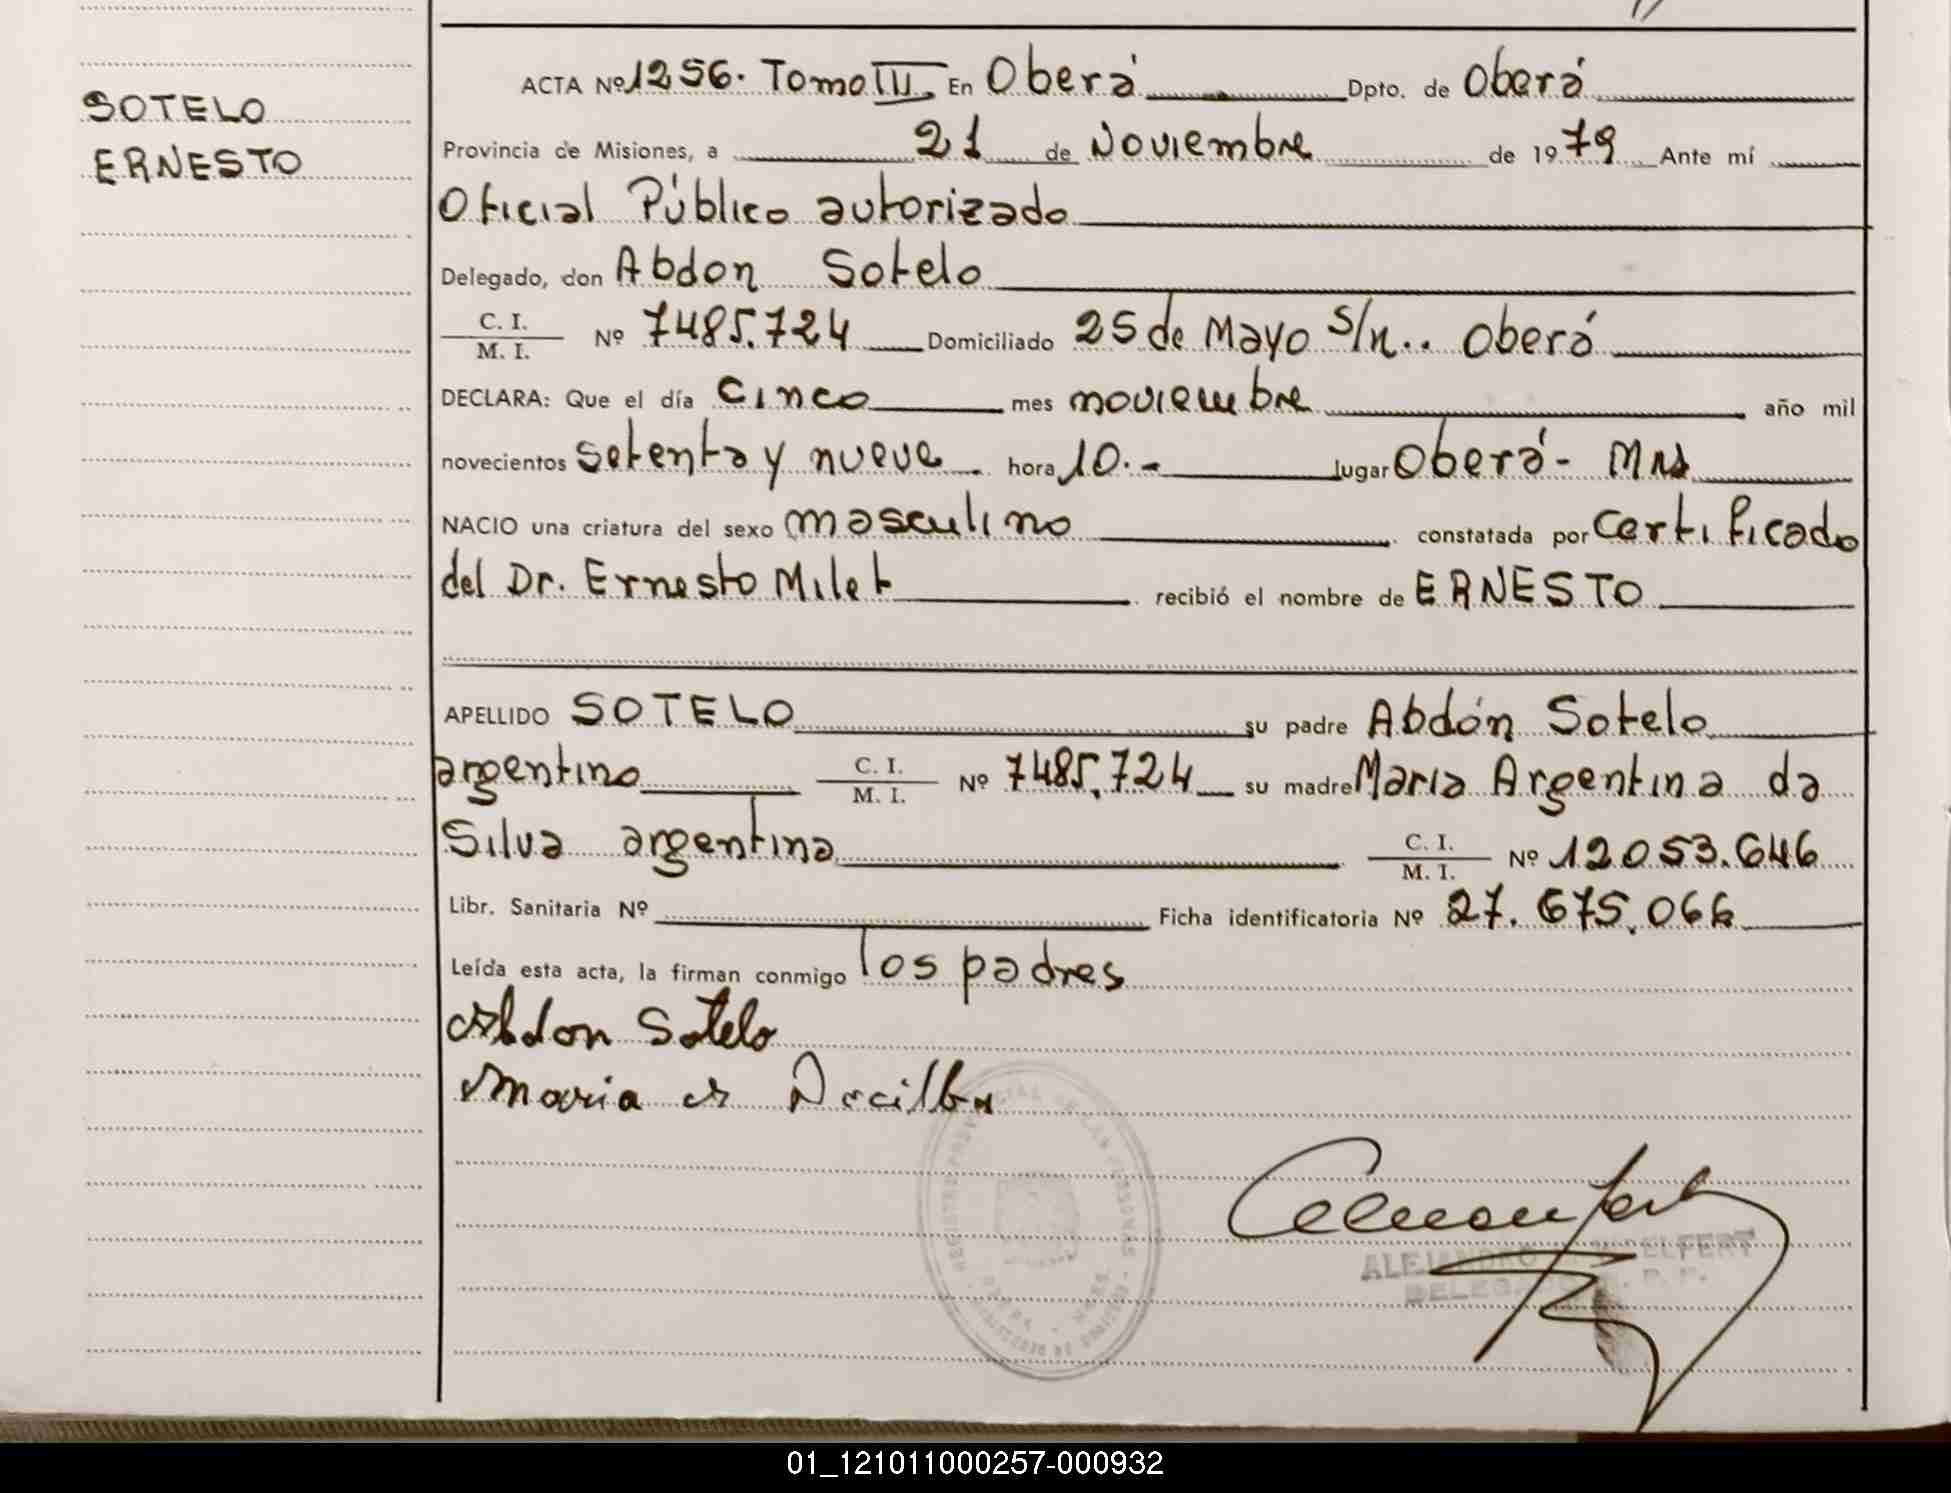 SOTELO
ERNESTO
ACTA Nº 1256. Tomo III. En Oberá Dpto. de Oberá
Provincia de Misiones, a 21 de Noviembre de 1979 Ante mí
Oficial Público autorizado
Delegado, don Abdon Sotelo
C. I.
M. I. Nº 7485.724 Domiciliado 25 de Mayo s/n.. Oberá
DECLARA: Que el día cinco mes noviembre año mil
novecientos setenta y nueve hora 10.- lugar Oberá - Mns
NACIO una criatura del sexo masculino constatada por Certificado
del Dr. Ernesto Milet recibió el nombre de ERNESTO
APELLIDO SOTELO su padre Abdón Sotelo
argentino C. I.
M. I. Nº 7485.724 su madre Maria Argentina da
Silva argentina C. I.
M. I. Nº 12053.646
Libr. Sanitaria Nº Ficha identificatoria Nº 27.675.066
Leída esta acta, la firman conmigo los padres
Abdon Sotelo
Maria
ALEJANDRO
DELEGADO R. P. P.
01_121011000257-000932